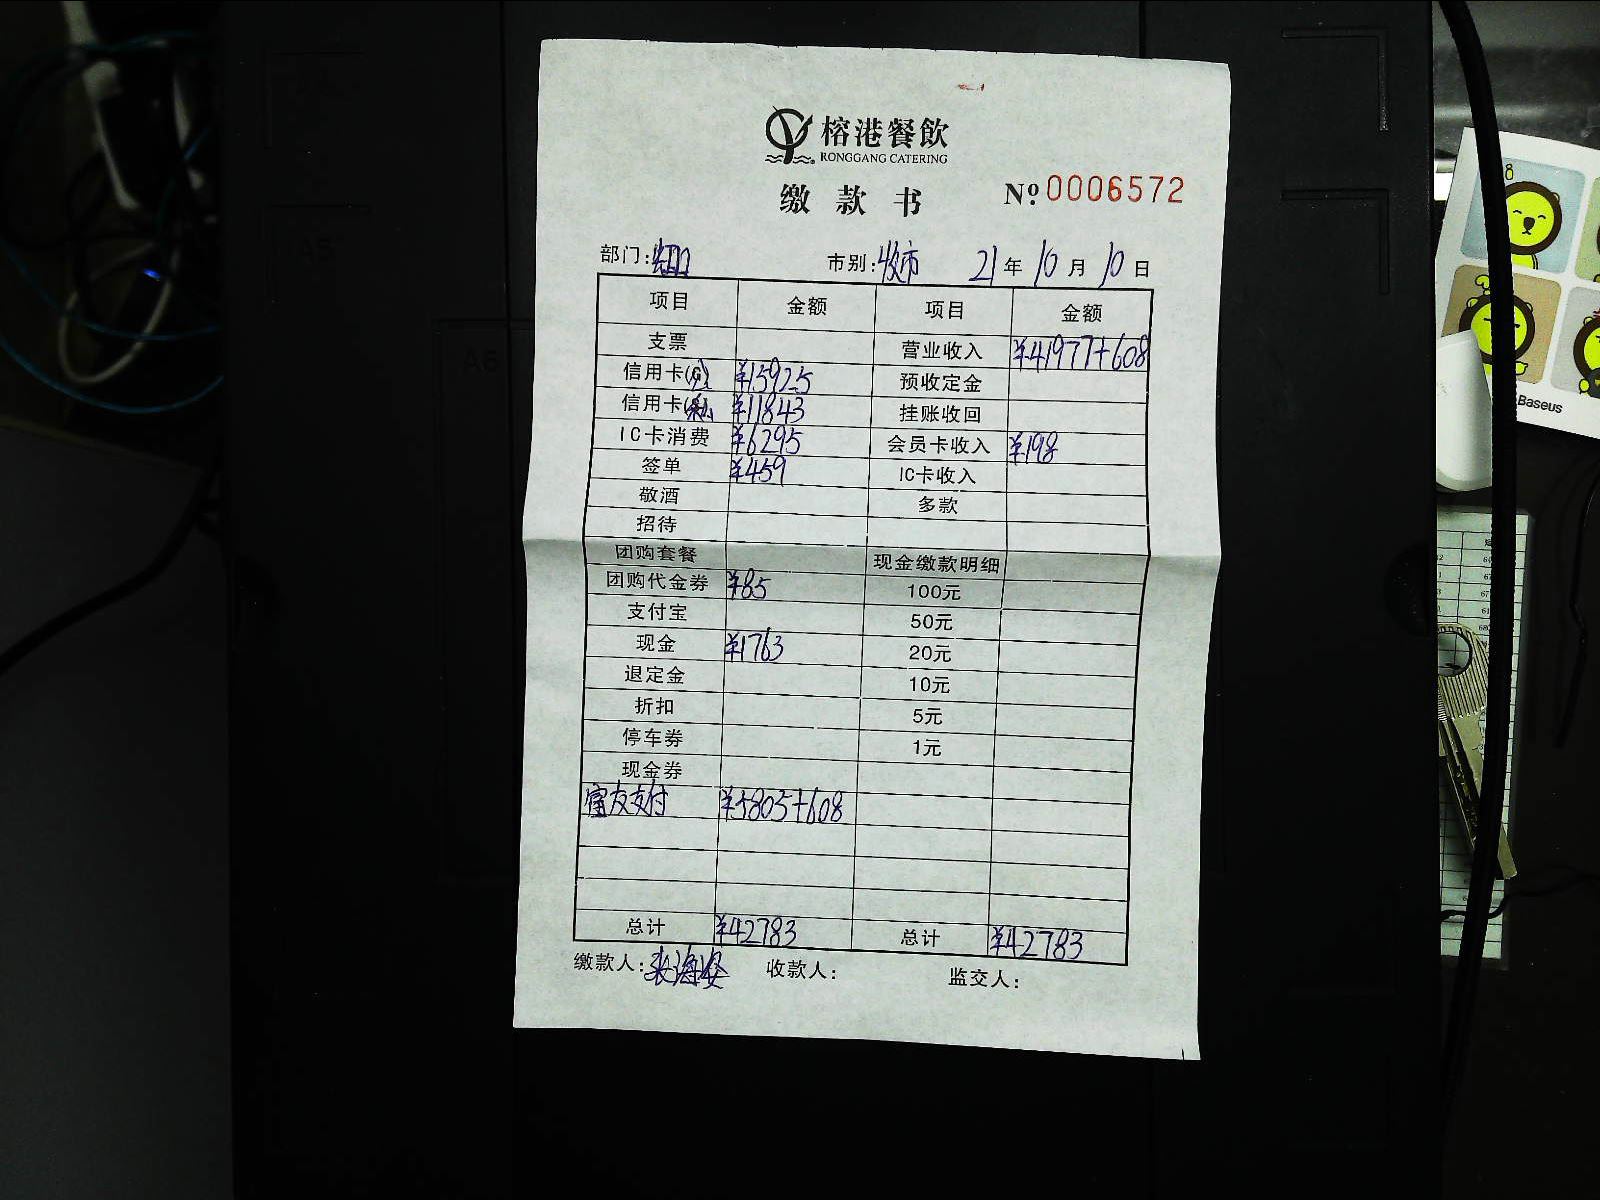 榕港餐飲
RONGGANG CATERING
缴款书 №0006572
部门:虹口 市别:收市 21年10月10日
项目 金额 项目 金额
支票 营业收入 ¥41977+608
信用卡(公) ¥15925 预收定金
信用卡(私) ¥11843 挂账收回
IC卡消费 ¥6295 会员卡收入 ¥198
签单 ¥459 IC卡收入
敬酒 多款
招待
团购套餐 现金缴款明细
团购代金券 ¥85 100元
支付宝 50元
现金 ¥1763 20元
退定金 10元
折扣 5元
停车券 1元
现金券
富友支付 ¥5805+608
总计 ¥42783 总计 ¥42783
缴款人: 收款人: 监交人:
Baseus
A5